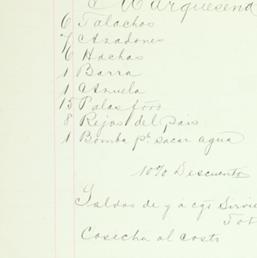 Marquesend
6 Talachos
7 Azadones
6 Hachas
1 Barra
1 Azuela
15 Palas
8 Rejas del pais
1 Bomba pa. sacar agua
10% Descuento
Saldos de y a cgo Sirvie
Tot
Cosecha al costo